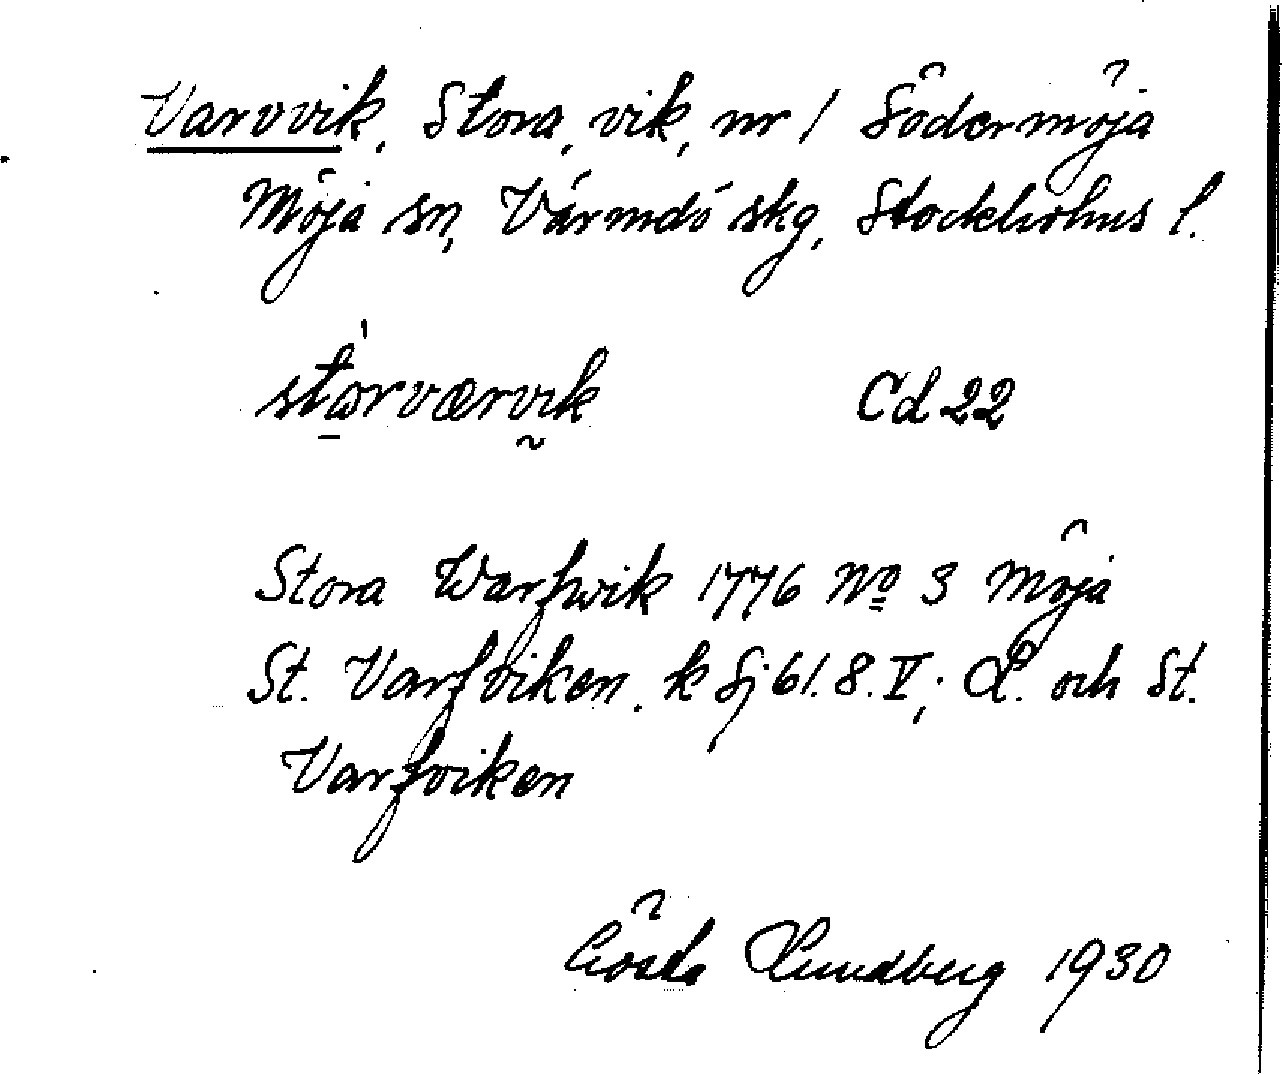 Varvvik, Stora, vik, nr 1 Södermöja
Möja sn, Värmdö skg, Stockholms l.
storværvik Cd 22
Stora Warfwik 1776 No 3 Möja
St. Varfviken. k Sj 61. 8. V; L. och St.
Varfviken
Gösta Lundberg 1930